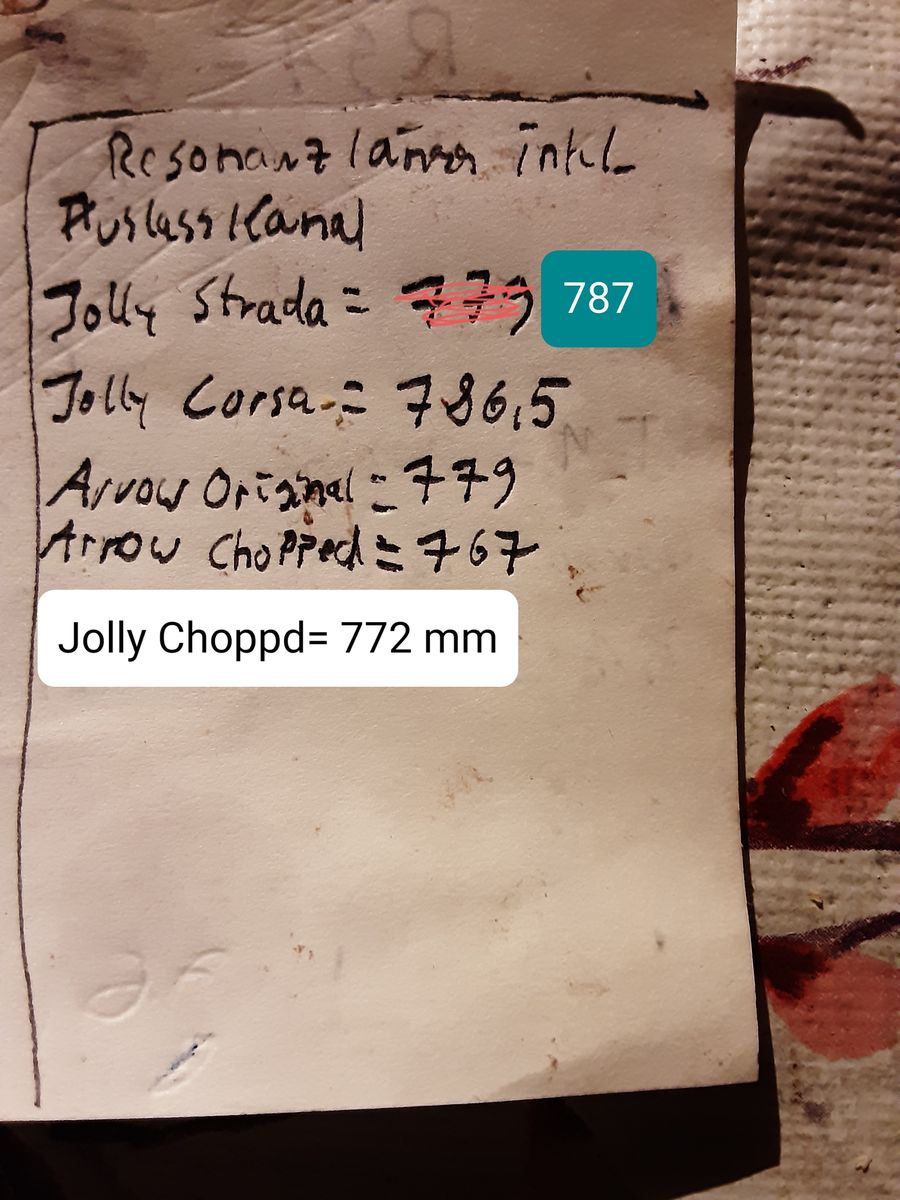 Resonanzlängen inkl.
Auslasskanal
Jolly Strada = 779 787
Jolly Corsa = 786,5
Arrow Original = 779
Arrow Chopped = 767
Jolly Choppd= 772 mm